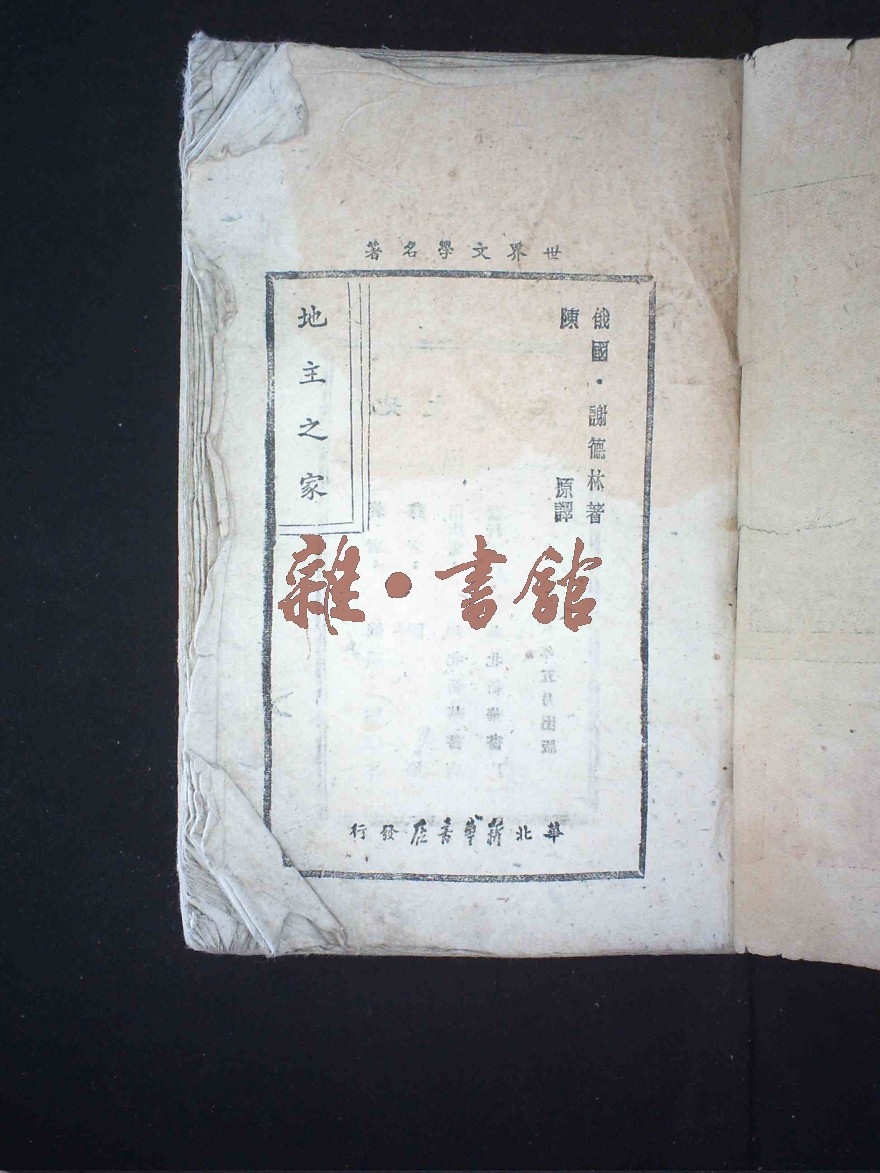 世界文學名著
俄國·謝德林著
陳原譯
地主之家
雜·書館
年五月出版
華北新華書店發行